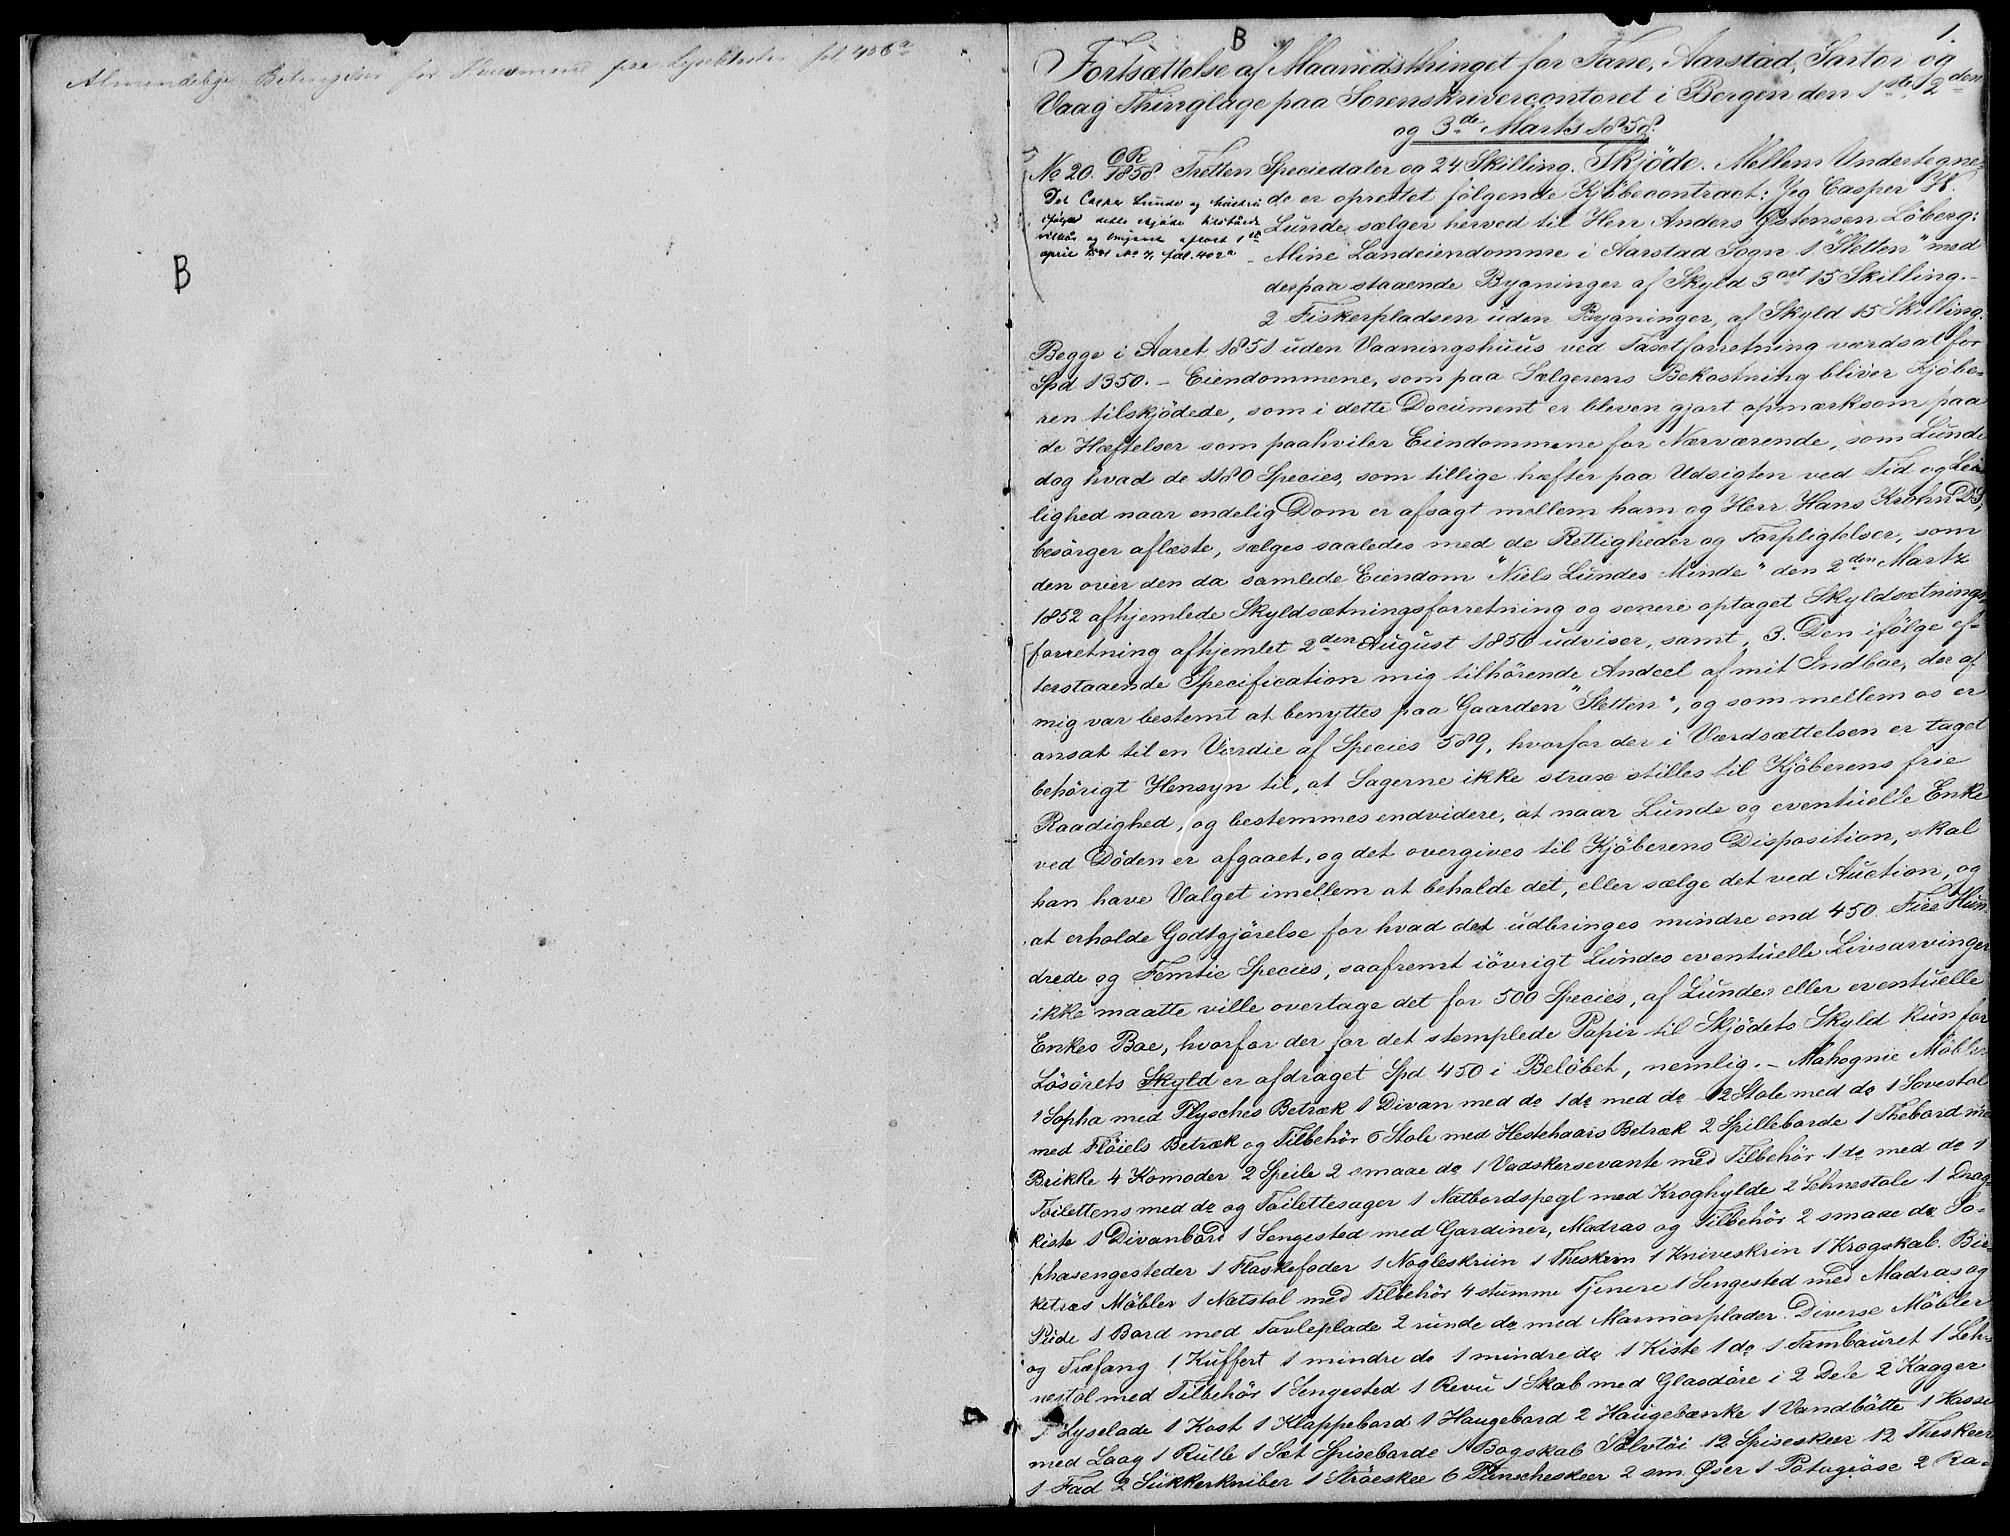 Almindelige Betingelser for Huusmænd paa Lysekloster fol 456a
B
B
1.
Fortsættelse af Maanedsthinget for Fane, Aarstad, Sartor og
Vaag Thinglage paa Sorenskrivercontoret i Bergen den 1ste, 2den
og 3de Marts 1858.
No 20. CR/1858 Tretten Speciedaler og 24 Skilling. Skjöde. Mellem Undertegne-
de er oprettet følgende Kjöbecontract: Jeg Casper H.
Det Casper Lunde og Hustru
ifølge dette Skjøde tilstaaede
vilkaar og
april No 7, fol. 402a
Lunde sælger herved til Herr Anders Ostensen Löberg:
Mine Landeiendomme i Aarstad Sogn 1 "Sletten" med
derpaa staaende Bygninger af Skyld 3 ort 15 Skilling.-
2 Fiskerpladsen uden Bygninger, af Skyld 15 Skilling.
Begge i Aaret 1851 uden Vaaningshuus ved Taxtforretning værdsat for
Spd 1350. - Eiendommene, som paa Sælgerens Bekostning bliver Kjöbe-
ren tilskjödede, som i dette Document er bleven gjort opmærksom paa
de Hæftelser som paahviler Eiendommene for Nærværende, som Lunde
dog hvad de 1180 Species, som tillige hæfter paa Udsigten ved Tid og Lei-
lighed naar endelig Dom er afsagt mellem ham og Herr Hans Krohn DS,
besörger aflæste, sælges saaledes med de Rettigheder og Forpligtelser, som
den over den da samlede Eiendom "Niels Lundes Minde" den 2den Martz
1852 afhjemlede Skyldsætningsforretning og senere optaget Skyldsætnings-
forretning afhjemlet 2den August 1856 udviser, samt, 3. Den ifölge ef-
terstaaende Specification mig tilhörende Andeel af mit Indboe, der af
mig var bestemt at benyttes paa Gaarden "Sletten", og som mellem os er
ansat til en Værdie af Species 589, hvorfor der i Værdsættelsen er taget
behörigt Hensyn til, at Sagerne ikke strax stilles til Kjöberens frie
Raadighed, og bestemmes endvidere, at naar Lunde og eventuelle Enke
ved Döden er afgaaet, og det overgives til Kjöberens Disposition, skal
han have Valget imellem at beholde det, eller sælge det ved Auction, og
at erholde Godtgjörelse for hvad det udbringes mindre end 450 Fire Hun-
drede og Femtie Species, saafremt iövrigt Lundes eventuelle Livsarvinger
ikke maatte ville overtage det for 500 Species, af Lundes eller eventuelle
Enkes Boe, hvorfor der for det stemplede Papir til Skjödets Skyld kun for
Lösörets Skyld er afdraget Spd 450 i Belöbet, nemlig. - Mahognie Möbler
1 Sopha med Plysches Betræk 1 Divan med do 1 do med do 12 Stole med do 1 Sovestol
med Flöiels Betræk og Tilbehör 6 Stole med Hestehaars Betræk 2 Spilleborde 1 Thebord med
Brikke 4 Komoder 2 Speile 2 smaae do 1 Vadskersevante med Tilbehör 1 do med do 1
Toilettens med do og Toilettesager 1 Natbordspegl med Kroghylde 2 Lehnestole 1 Drag-
kiste 1 Divanbord 1 Sengested med Gardiner, Madras og Tilbehör 2 smaae do So-
phasengesteder 1 Flaskefoder 1 Nögleskriin 1 Theskrin 1 Kniveskrin 1 Krogskab. Bir-
ketræs Möbler 1 Natstol med Tilbehör 4 stumme Tjenere 1 Sengested med Madras og
Pude 1 Bord med Tavleplade 2 runde do med Marmorplader. Diverse Möbler
og Træfang 1 Kuffert 1 mindre do 1 mindre do 1 Kiste 1 do 1 Tambauret 1 Leh-
nestol med Tilbehör 1 Sengested 1 Revu 1 Skab med Glasdöre i 2 Dele 2 Kagger
1 Lyselade 1 Kost 1 Klappebord 1 Haugebord 2 Haugebænke 1 Vandbötte 1 Kasse
med Laag 1 Rulle 1 Sæt Spiseborde 1 Bogskab Sölvtöi 12 Spiseskeer 12 Theskeer
1 Fad 2 Sukkerkniber 1 Ströeskee 6 Punscheskeer 2 sm. Öser 1 Potageöse 2 Ra-